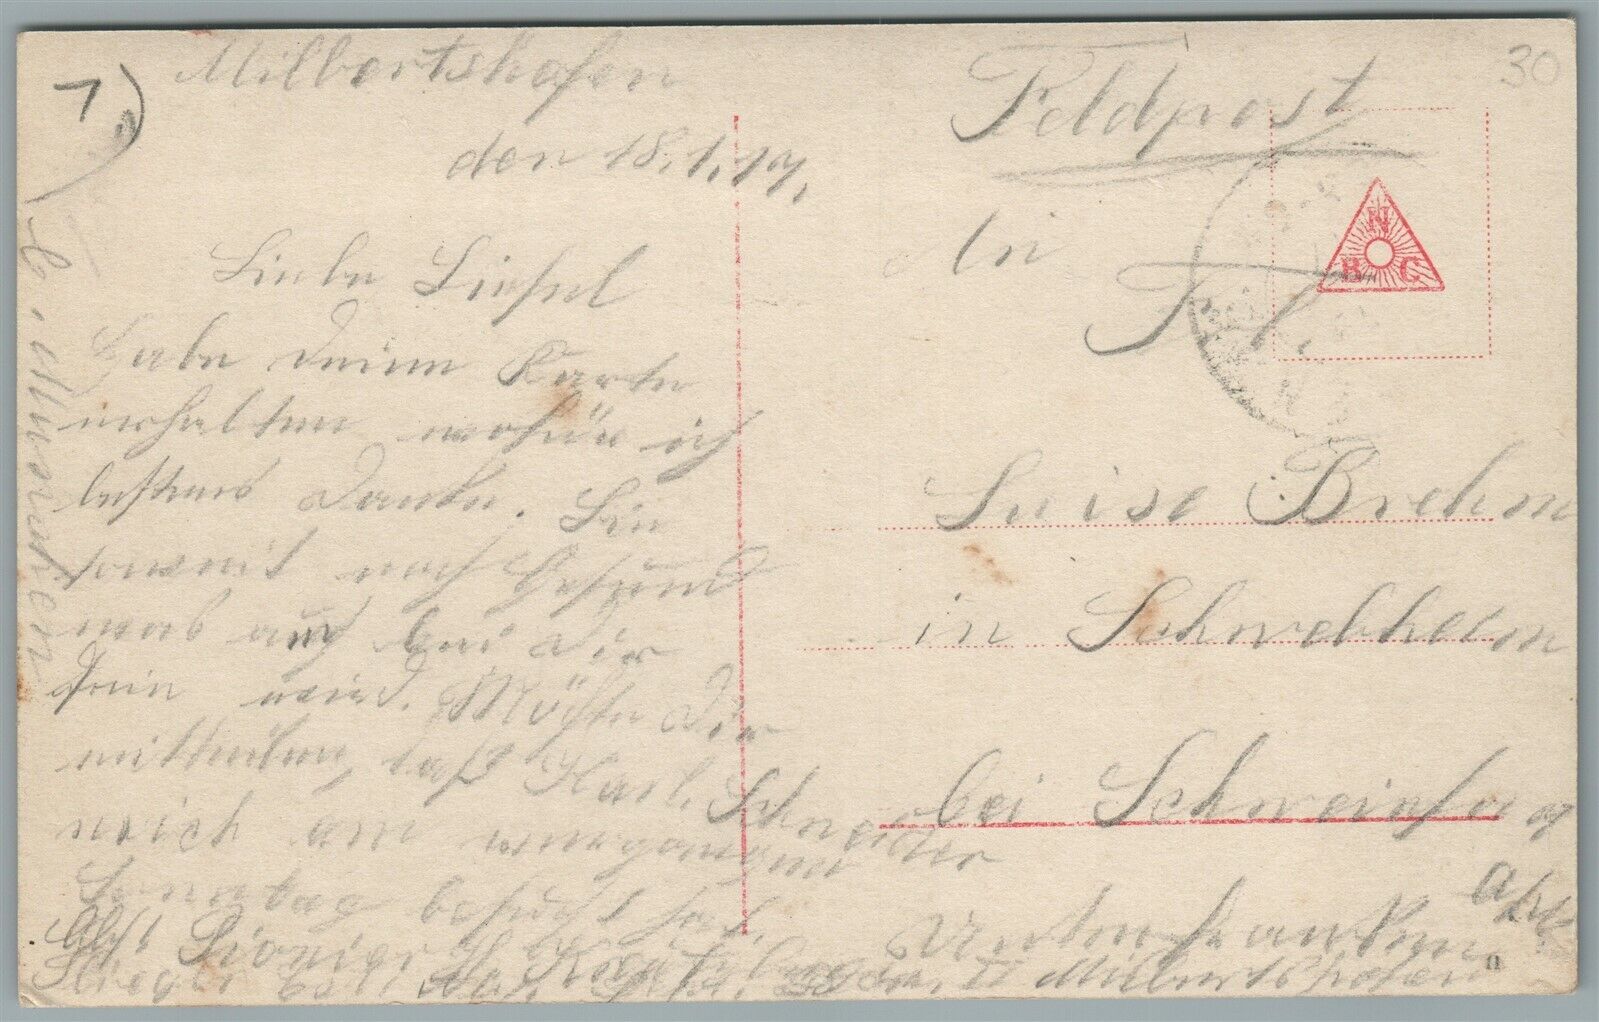 30
Milbertshofen
den 18.1.17.
Liebe Liesel
Habe Deine Karte
erhalten wofür ich
bestens Danke. Bin
soweit noch Gesund
was auch bei Dir
sein wird. Möchte Dir
mitteilen, daß Karl Schneider
mich am vergangenen
Sonntag besucht hat.
Abs. Pionier
Milbertshofen
b. München
Feldpost
An
Frl.
N
B C
Luise Brehm
in Schwebheim
bei Schweinfurt
Unterfranken
11